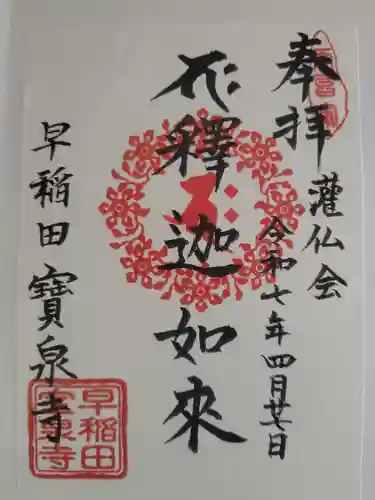 奉拝
灌仏会
令和七年四月廿七日
釋迦如來
早稲田 寶泉寺
早稲田
宝泉寺